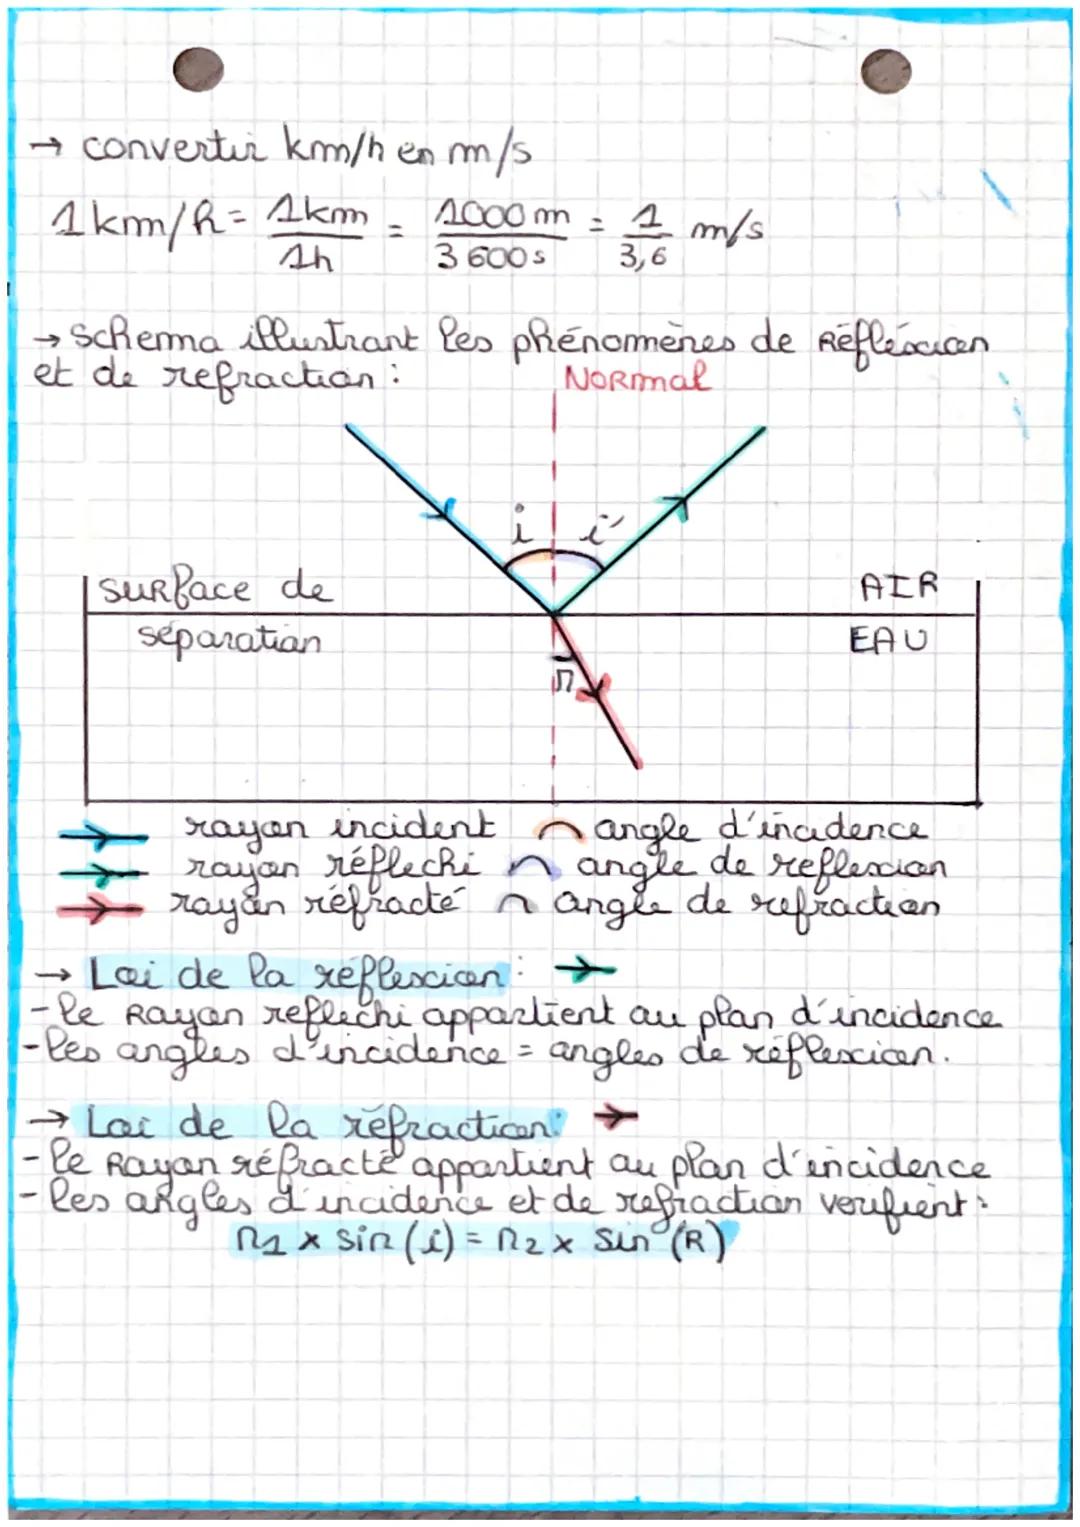 → convertir km/h en m/s
1km/h = 1km/1h = 1000m/3600s = 1/3,6 m/s
→ schema illustrant les phénomènes de Réfléxion
et de refraction :
NORmal
i i'
surface de
AIR
séparation
EAU
r
rayon incident angle d'incidence
rayon réflechi angle de reflexion
rayon réfracté angle de refraction
→ Loi de la réflexion : →
- le Rayon reflechi appartient au plan d'incidence
- les angles d'incidence = angles de réflexion.
→ Loi de la réfraction: →
- le Rayon réfracté appartient au plan d'incidence
- les angles d'incidence et de refraction verifient :
n1 x sin (i) = n2 x sin (R)